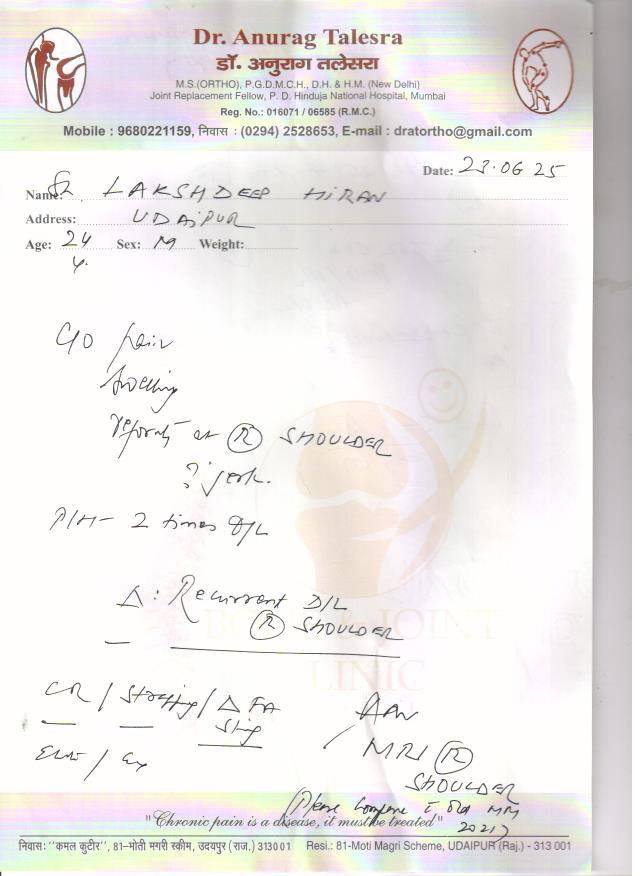 Dr. Anurag Talesra
डॉ. अनुराग तलेसरा
M.S.(ORTHO), P.G.D.M.C.H., D.H. & H.M. (New Delhi)
Joint Replacement Fellow, P. D. Hinduja National Hospital, Mumbai
Reg. No.: 016071 / 06585 (R.M.C.)
Mobile : 9680221159, निवास : (0294) 2528653, E-mail : dratortho@gmail.com
Date: 23.06 25
Name: LAKSHDEEP HIRAN
Address: UDAIPUR
Age: 24 y. Sex: M Weight:
C/O pain
swelling
at (R) SHOULDER
? jerk.
P/H - 2 times D/L
Δ: Recurrent D/L
(R) SHOULDER
CR / Strapping / Δ FA
Sling
Adv
MRI (R)
SHOULDER
(Please Compare c̄ old MRI
2021)
BONE & JOINT
CLINIC
"Chronic pain is a disease, it must be treated"
निवास: "कमल कुटीर", 81-मोती मगरी स्कीम, उदयपुर (राज.) 313001 Resi.: 81-Moti Magri Scheme, UDAIPUR (Raj.) - 313 001